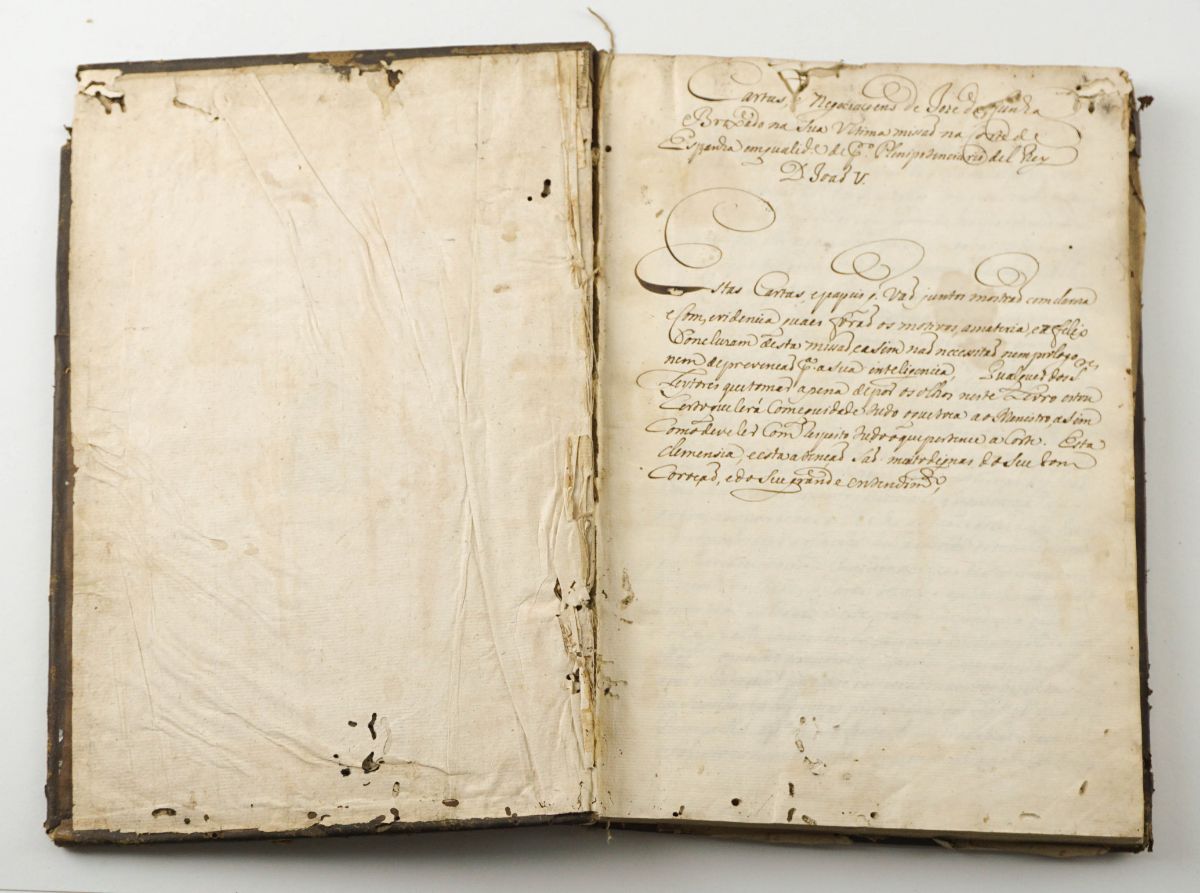 Cartas, e Negociaçoens de Joze da Cunha
Brochado na Sua Ultima missaõ na Corte de
Espanha em qualid.e de E.o Plenipotenciario del Rey
D. Joaõ V.
Estas Cartas, e papeis q̃ Vaõ juntos mostraõ com clareza
e Com evidencia quaes foraõ os motivos, a materia, e a felix
Concluzam desta missaõ, e asim naõ necessitaõ nem prologo,
nem de prevencaõ p.a a Sua inteligencia, Qualquer dos
Leytores que tomar a pena de por os olhos neste Livro
que lerá Com equidade tudo o que toca ao Menistro, asim
Como deve ler Com respeito tudo o que pertence a Corte. Esta
clemensia, e esta atençaõ Saõ muito dignas do Seu bom
Coraçaõ, e do Seu grande entendim.to,